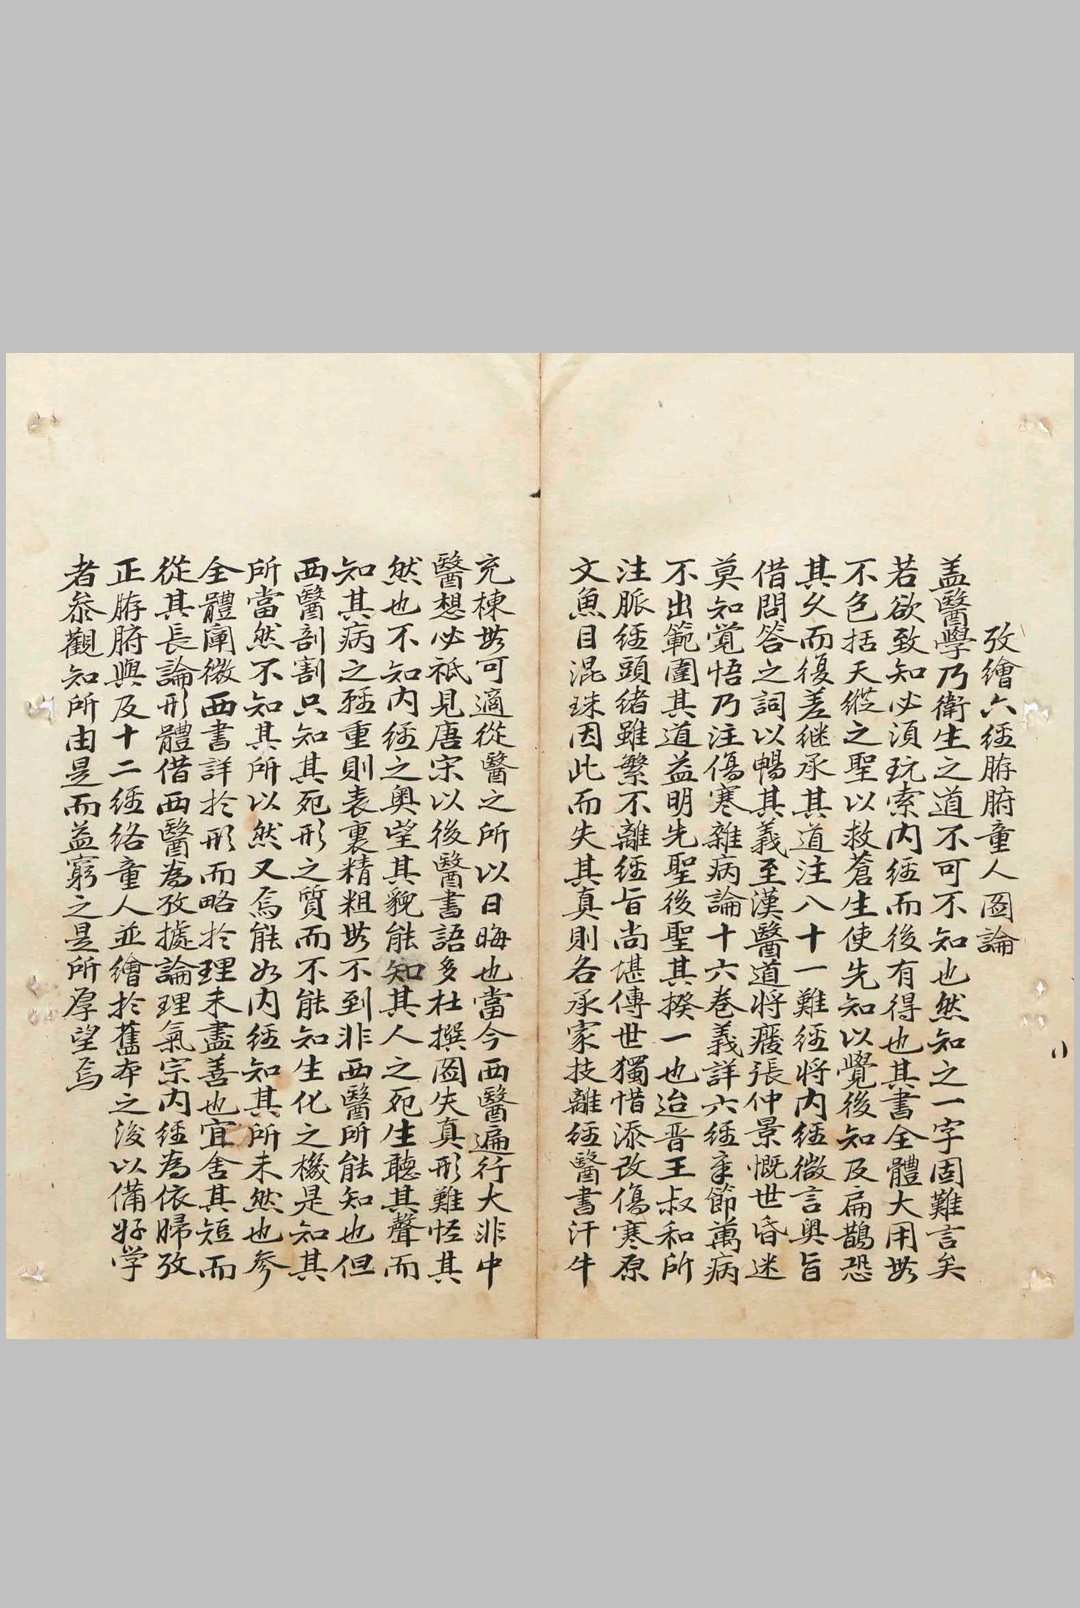 攷繪六經腑腑童人圖論
盖醫學乃衛生之道不可不知也然知之一字固難言矣
若欲致知必須玩索内經而後有得也其書全體大用無
不包括天縱之聖以救蒼生使先知以覺後知及扁鵲恐
其久而復差継承其道注八十一難經將内經微言奥旨
借問答之詞以暢其義至漢醫道將癈張仲景慨世昏迷
莫知覚悟乃注傷寒雜病論十六卷義詳六經章節萬病
不出範圍其道益明先聖後聖其揆一也迨晋王叔和所
注脈經頭緒雖繁不離經旨尚堪傳世獨惜添改傷寒原
文魚目混珠因此而失其真則各承家技離經醫書汗牛
充棟無可適從醫之所以日晦也當今西醫遍行大非中
醫想必祗見唐宋以後醫書語多杜撰圖失真形難怪其
然也不知内經之奥望其貌能知其人之死生聽其聲而
知其病之輕重則表裏精粗無不到非西醫所能知也但
西醫剖割只知其死形之質而不能知生化之機是知其
所當然不知其所以然又焉能如内經知其所未然也參
全體闡微西書詳於形而略於理未盡善也宜舍其短而
從其長論形體借西醫為攷據論理氣宗内經為依歸攷
正腑腑與及十二經络童人並繪於舊本之後以備好学
者叅觀知所由是而益窮之是所厚望焉